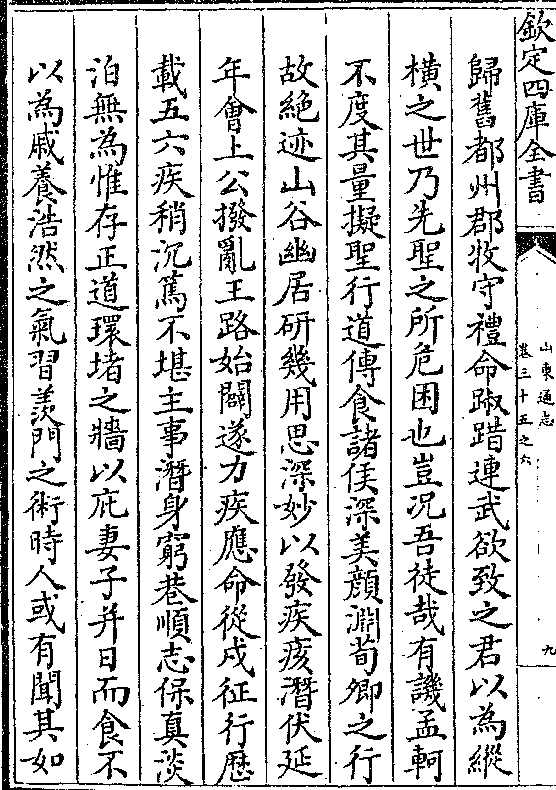 欽定四庫全書
山東通志
卷三十五之六
九
歸舊都州郡牧守禮命踧踖連武欲致之君以為縱
橫之世乃先聖之所危困也豈况吾徒哉有譏孟軻
不度其量擬聖行道傳食諸侯深美顔淵荀卿之行
故絶迹山谷幽居研幾用思深妙以發疾疢潛伏延
年會上公撥亂王路始闢遂力疾應命從戍征行歴
載五六疾稍沉篤不堪主事潛身窮巷順志保真淡
泊無為惟存正道環堵之牆以庇妻子并日而食不
以為戚養浩然之氣習羨門之術時人或有聞其如